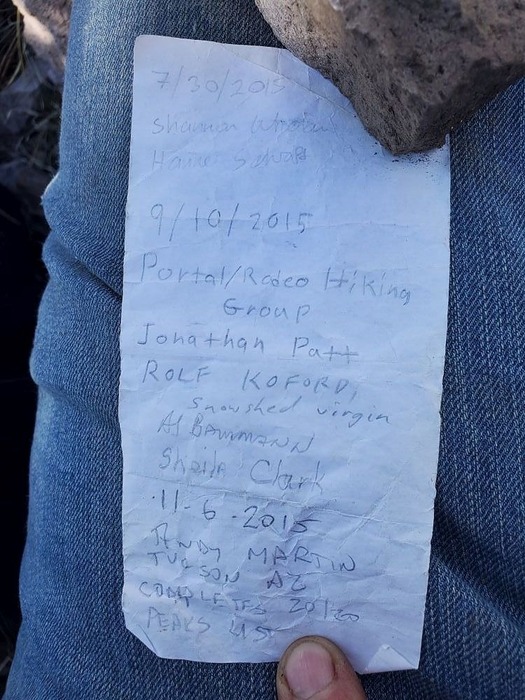 7/30/2015
Shannon
9/10/2015
Portal/Rodeo Hiking
Group
Jonathan Patt
ROLF KOFORD,
snowshed virgin
Al BAMMANN
Sheila Clark
11-6-2015
ANDY MARTIN
TUCSON AZ
COMPLETES 20/20
PEAKS LIST